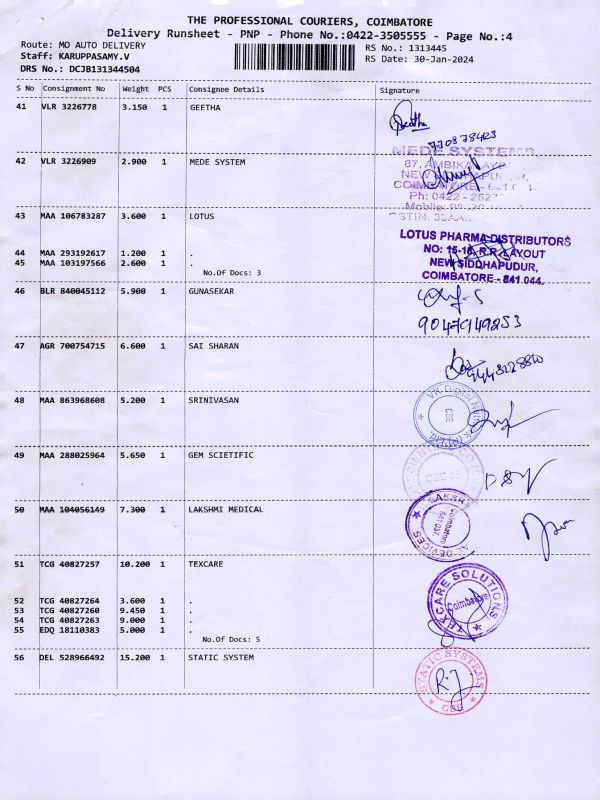 THE PROFESSIONAL COURIERS, COIMBATORE
Delivery Runsheet - PNP - Phone No.:0422-3505555 - Page No.:4
Route: MO AUTO DELIVERY
RS No.: 1313445
Staff: KARUPPASAMY.V
RS Date: 30-Jan-2024
DRS No.: DCJB131344504
S No Consignment No Weight PCS Consignee Details Signature
41 VLR 3226778 3.150 1 GEETHA
Geetha
42 VLR 3226909 2.900 1 MEDE SYSTEM
MEDE SYSTEMS
43 MAA 106783287 3.600 1 LOTUS
44 MAA 293192617 1.200 1 .
45 MAA 103197566 2.600 1 .
No.Of Docs: 3
LOTUS PHARMA DISTRIBUTORS
NO: 15-16, R.R. LAYOUT
NEW SIDDHAPUDUR,
COIMBATORE - 641 044.
46 BLR 840045112 5.900 1 GUNASEKAR
47 AGR 700754715 6.600 1 SAI SHARAN
48 MAA 863968608 5.200 1 SRINIVASAN
VK Digital
CBE
49 MAA 288025964 5.650 1 GEM SCIETIFIC
50 MAA 104056149 7.300 1 LAKSHMI MEDICAL
Coimbatore
641 037.
51 TCG 40827257 10.200 1 TEXCARE
52 TCG 40827264 3.600 1 .
53 TCG 40827260 9.450 1 .
54 TCG 40827263 9.000 1 .
55 EDQ 18110383 5.000 1 .
No.Of Docs: 5
TEXCARE SOLUTIONS
Coimbatore
56 DEL 528966492 15.200 1 STATIC SYSTEM
STATIC SYSTEMS
CBE